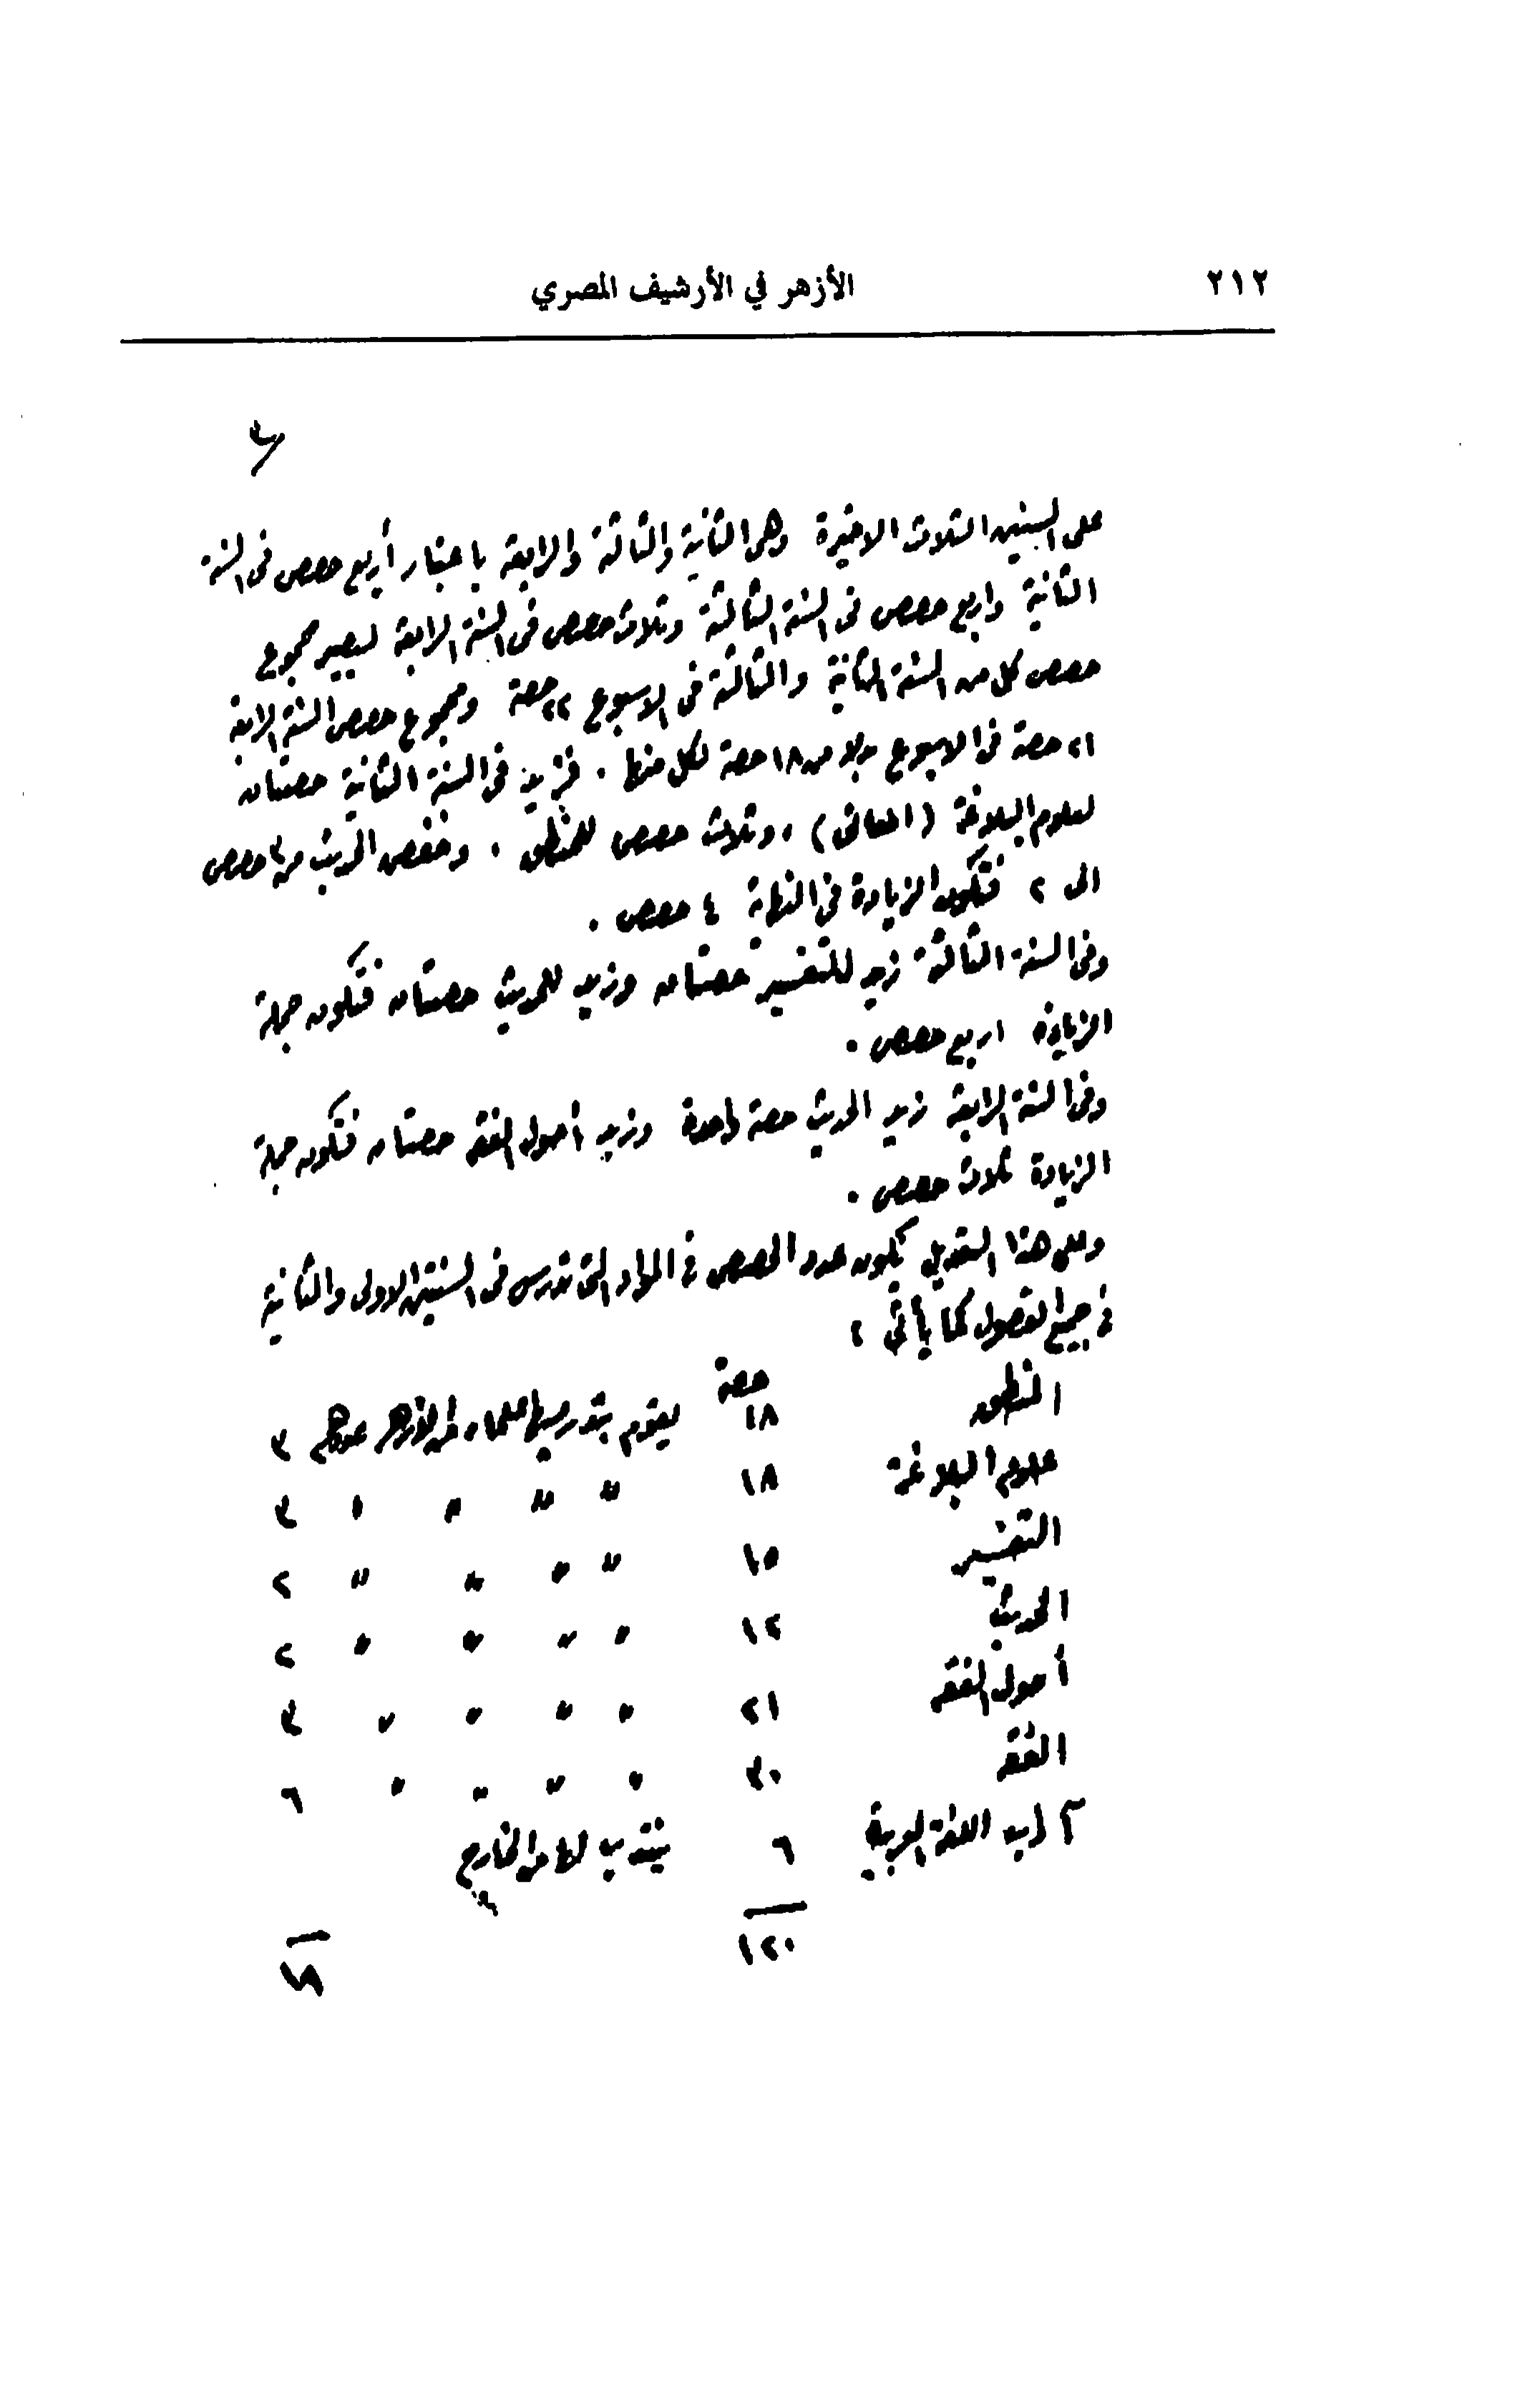 ٢١٢ الأزهر في الأرشيف المصري
على السنين الثلاث الاخيرة وهى الثانية والثالثة والرابعة باعتبار أربع حصص فى السنة
الثانية واربع حصص فى السنة الثالثة وثلاث حصص فى السنة الرابعة ليصير مجموع
حصص كل من السنة الثانية والثالثة فى الاسبوع ٢٢ حصة ومجموع حصص السنة الرابعة
٢١ حصة فى الاسبوع بدلا من ١٨ حصة لكل منها . فزيد فى السنة الثانية حصتان
لعلوم البلاغة (المعانى) ، وثلاث حصص للمنطق . وخفض الحديث من ٣ حصص
الى ٢ فتكون الزيادة فى النهاية ٤ حصص .
وفى السنة الثالثة زيد للتفسير حصتان وزيد للحديث حصتان فتكون جملة
الزيادة اربع حصص .
وفى السنة الرابعة زيد الحديث حصة واحدة وزيد أصول الفقه حصتان فتكون جملة
الزيادة ثلاث حصص .
وعلى هذا التعديل يكون عدد الحصص فى المواد التى تدرس فى السنتين الاولى والثانية
فى جميع الفصول كما يأتى :
حصة
المنطق ١٨ يقوم بتدريسها علماء من الأزهر عددهم ٣
علوم البلاغة ١٨ " " " " ٣
التفسير ١٥ " " " " ٢
الحديث ١٢ " " " " ٢
أصول الفقه ٢١ " " " " ٣
الفقه ٣٠ " " " " ٦
آداب اللغة العربية ٦ ينتدب لها من الخارج
١٢٠ ١٩